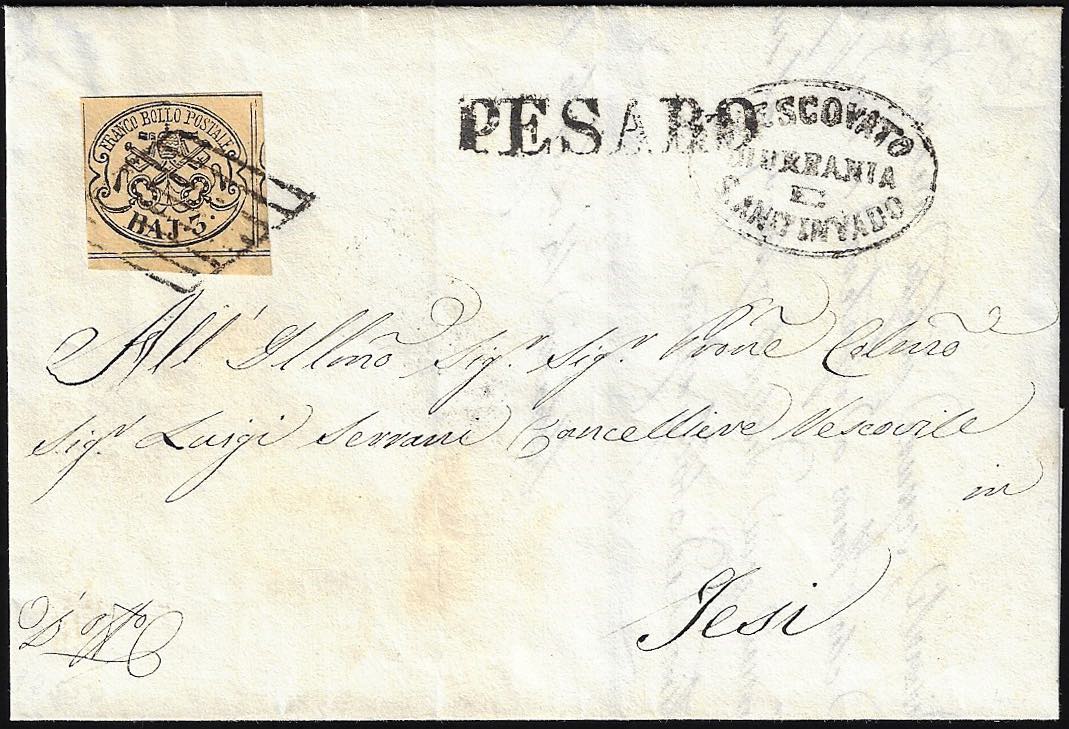 FRANCO BOLLO POSTALE
BAJ. 3.
PESARO
VESCOVATO
DI URBANIA
E
SANT'ANG. IN VADO
All' Illmo Sigr. Sigr. Prone Colmo
Sigr. Luigi Serrani Cancelliere Vescovile
in
Jesi
D'Offo